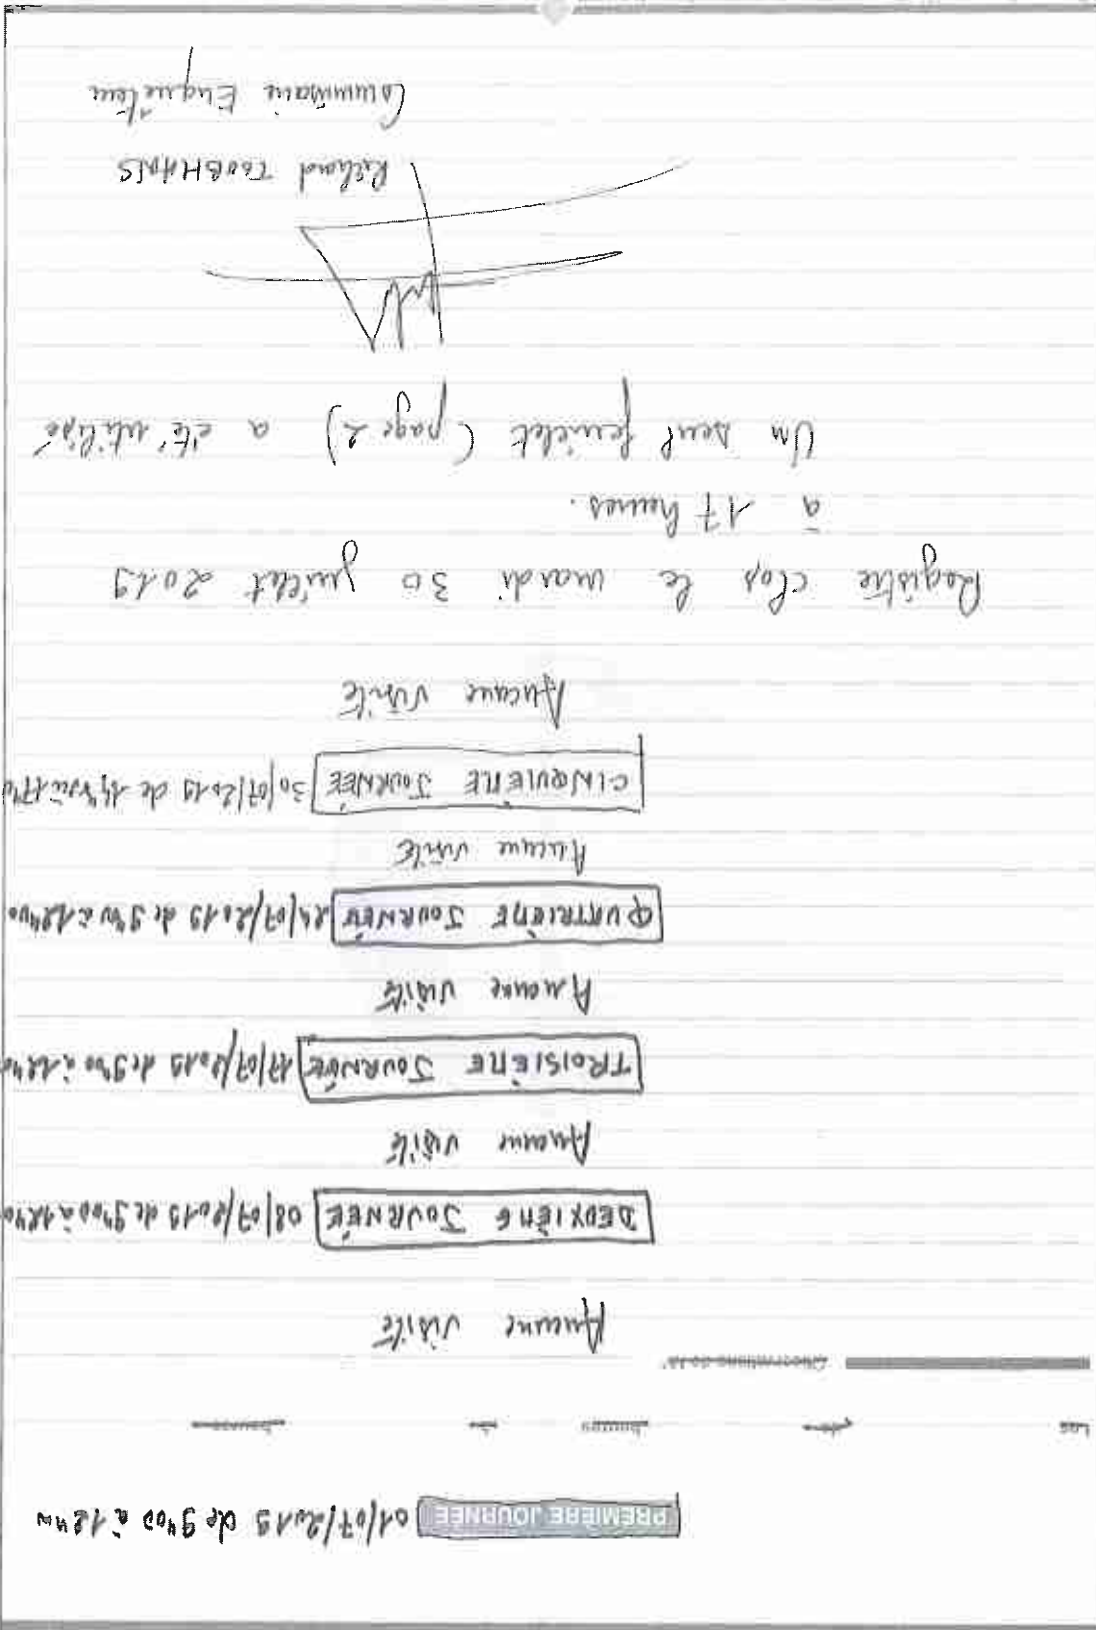 PREMIÈRE JOURNÉE 01/07/2019 de 9h00 à 12h00
Les de heures à heures
Observations de M.
Aucune visite
DEUXIÈME JOURNÉE 08/07/2019 de 9h00 à 12h00
Aucune visite
TROISIÈME JOURNÉE 17/07/2019 de 9h00 à 12h00
Aucune visite
QUATRIÈME JOURNÉE 24/07/2019 de 9h00 à 12h00
Aucune visite
CINQUIÈME JOURNÉE 30/07/2019 de 14h00 à 17h
Aucune visite
Registre clos le mardi 30 juillet 2019
à 17 heures.
Un seul feuillet (page 2) a été utilisé
Richard
Commissaire Enquêteur